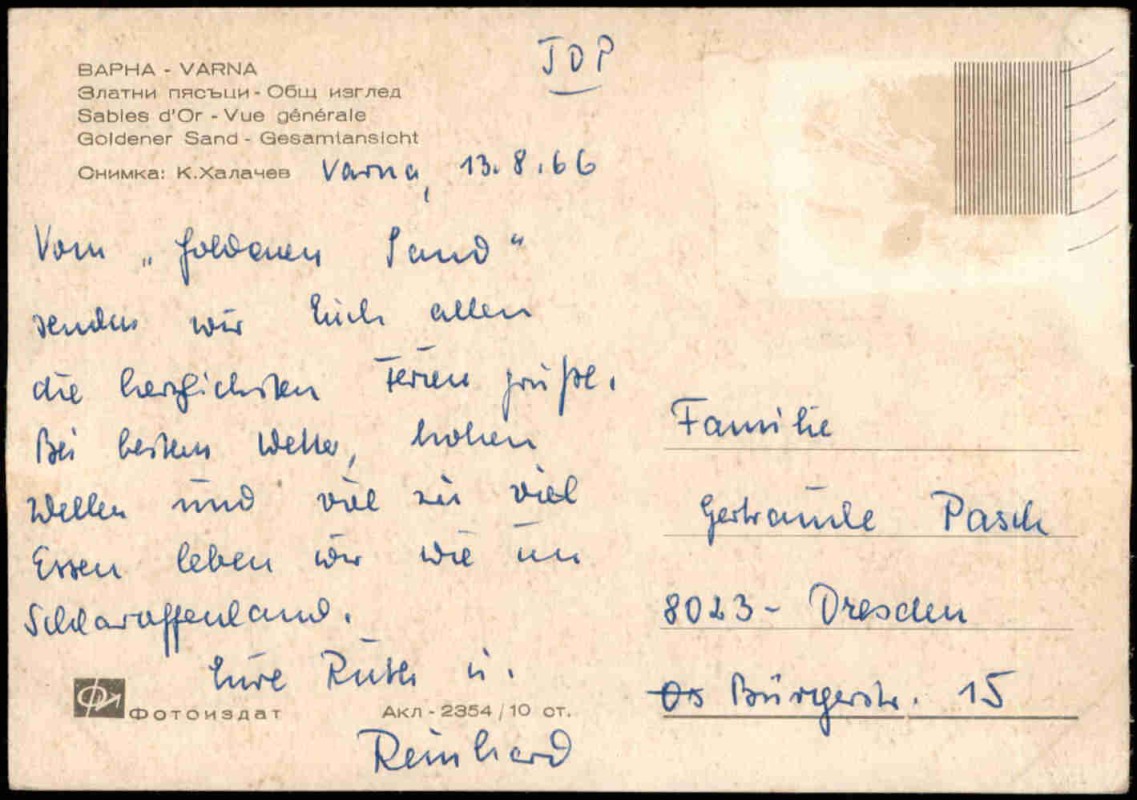 ВАРНА - VARNA
Златни пясъци - Общ изглед
Sables d'Or - Vue générale
Goldener Sand - Gesamtansicht
Снимка: К.Халачев
JDP
Varna, 13.8.66
Vom „Goldenen Sand“
senden wir Euch allen
die herzlichsten Feriengrüße.
Bei bestem Wetter, hohen
Wellen und viel zu viel
Essen leben wir wie im
Schlaraffenland.
Eure Ruth u.
Reinhard
Familie
Gertraude Pasch
8023 - Dresden
Bürgerstr. 15
Фотоиздат
Акл - 2354 / 10 ст.